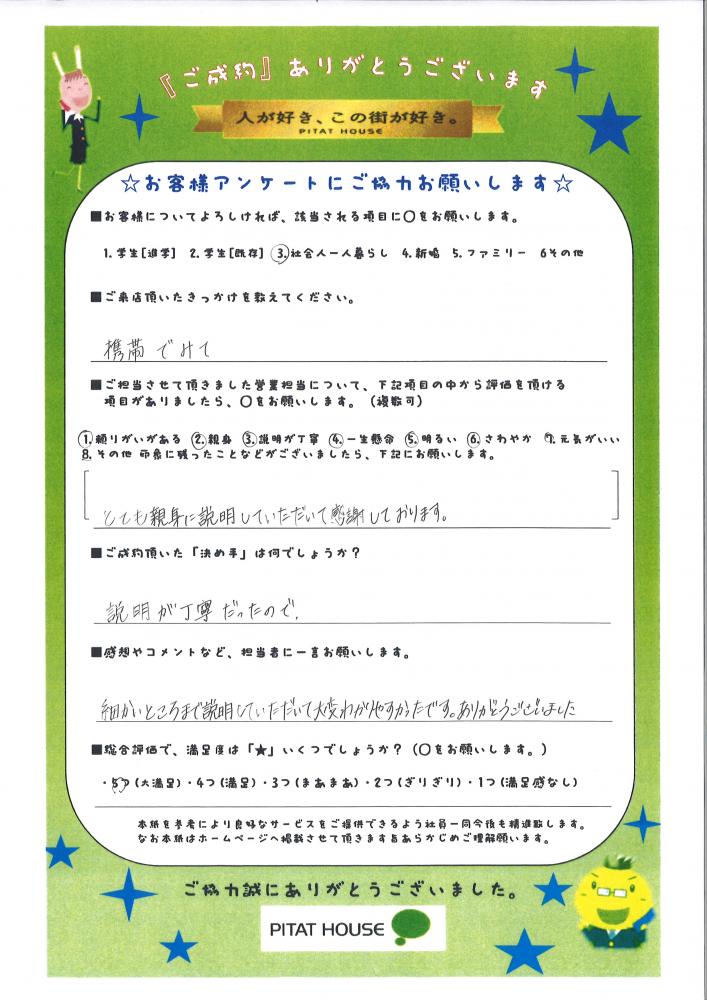 『ご成約』ありがとうございます
人が好き、この街が好き。
PITAT HOUSE
☆お客様アンケートにご協力お願いします☆
■お客様についてよろしければ、該当される項目に〇をお願いします。
1.学生[進学] 2.学生[既存] 3.社会人一人暮らし 4.新婚 5.ファミリー 6その他
■ご来店頂いたきっかけを教えてください。
携帯でみて
■ご担当させて頂きました営業担当について、下記項目の中から評価を頂ける
項目がありましたら、〇をお願いします。（複数可）
1.頼りがいがある 2.親身 3.説明が丁寧 4.一生懸命 5.明るい 6.さわやか 7.元気がいい
8.その他 印象に残ったことなどがございましたら、下記にお願いします。
とても親身に説明していただいて感謝しております。
■ご成約頂いた「決め手」は何でしょうか？
説明が丁寧だったので、
■感想やコメントなど、担当者に一言お願いします。
細かいところまで説明していただいて大変わかりやすかったです。ありがとうございました
■総合評価で、満足度は「★」いくつでしょうか？（〇をお願いします。）
・5つ(大満足)・4つ(満足)・3つ(まあまあ)・2つ(ぎりぎり)・1つ(満足感なし)
本紙を参考により良好なサービスをご提供できるよう社員一同今後も精進致します。
なお本紙はホームページへ掲載させて頂きますあらかじめご理解願います。
ご協力誠にありがとうございました。
PITAT HOUSE